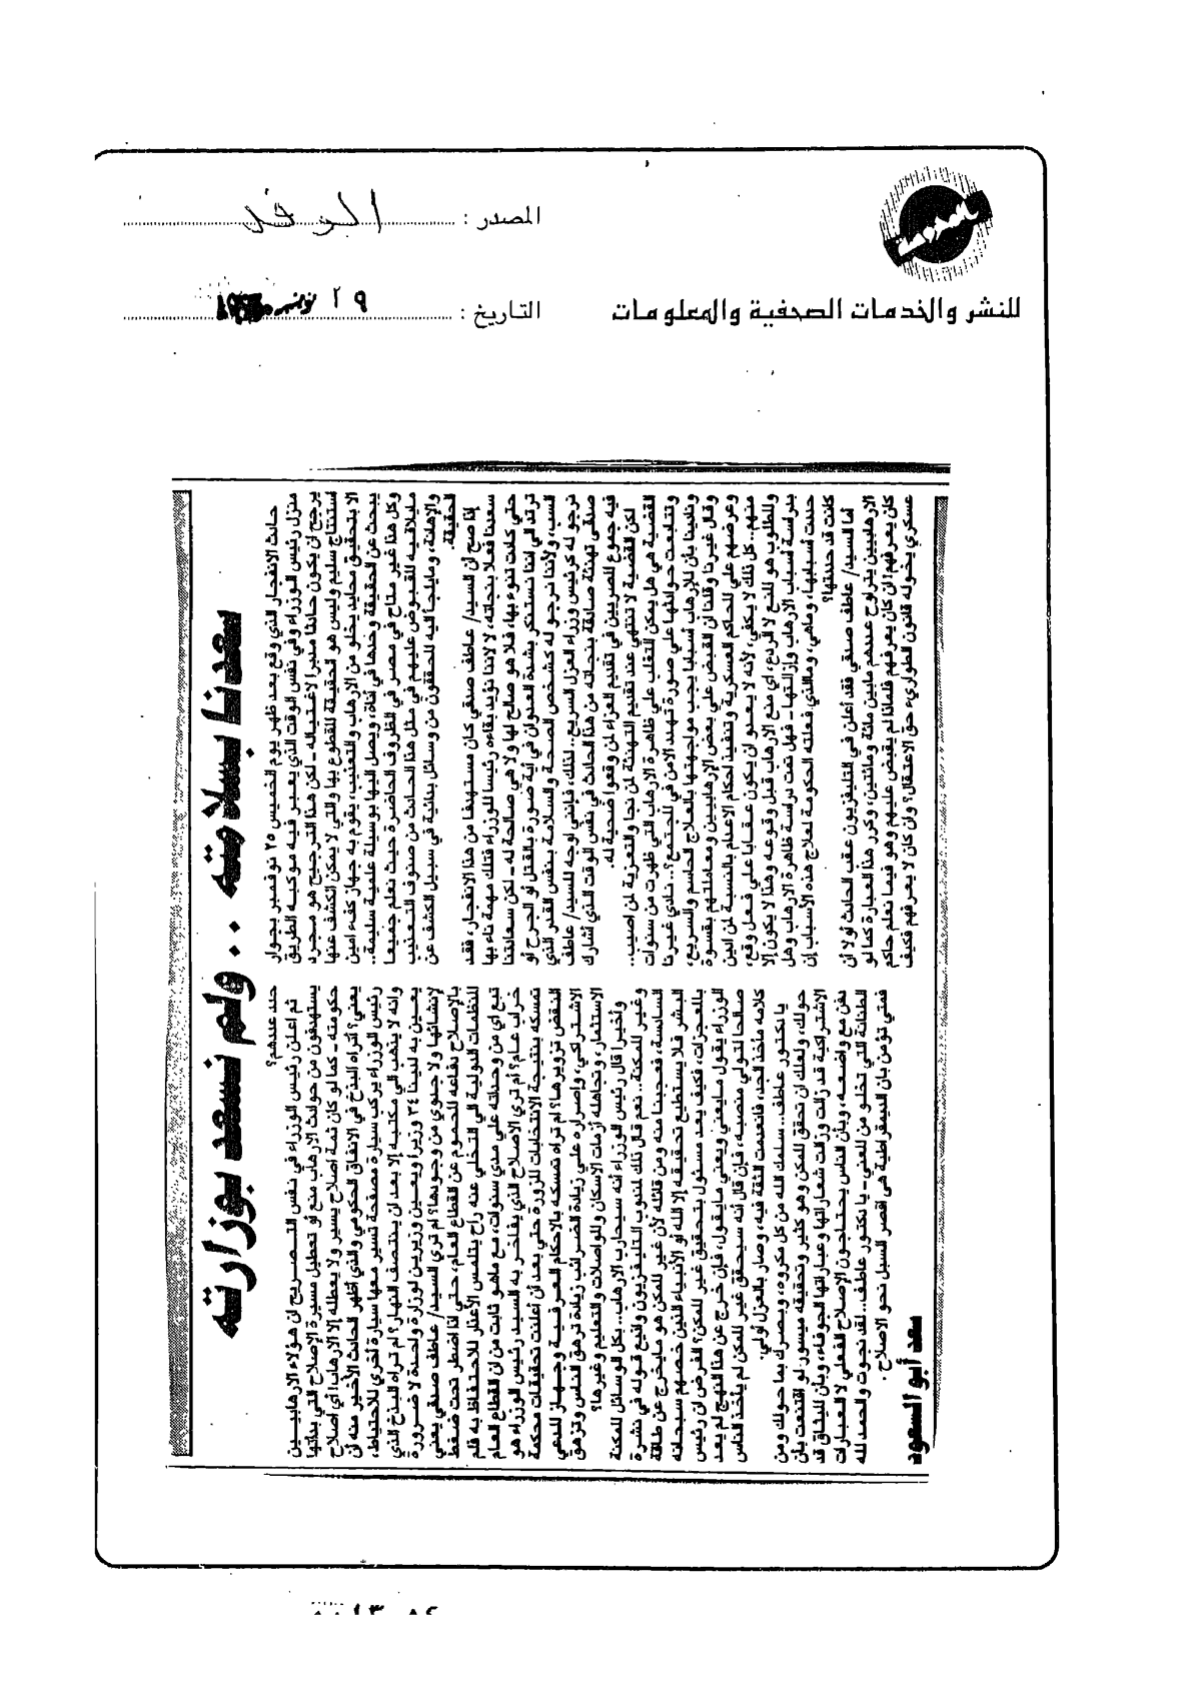 للنشر والخدمات الصحفية والمعلومات
المصدر : الوفد
التاريخ : ٢٩ نوفمبر
سعدنا بسلامته .. ولم نسعد بوزارته
حادث الانفجار الذي وقع بعد ظهر يوم الخميس ٢٥ نوفمبر بجوار
منزل رئيس الوزراء وفي نفس الوقت الذي يعبر فيه موكبه الطريق
يرجح ان يكون حادثا مدبرا لاغتياله ـ لكن هذا الترجيح هو مجرد
استنتاج سليم وليس هو الحقيقة المقطوع بها والتي لا يمكن الكشف عنها
الا بتحقيق محايد يخلو من الارهاب والتعذيب، يقوم به جهاز كفء امين
يبحث عن الحقيقة وحدها في اناة، ويصل اليها بوسيلة علمية سليمة..
وكل هذا غير متاح في مصر في الظروف الحاضرة حيث نعلم جميعا
مايلاقيه المقبوض عليهم في مثل هذا الحادث من صنوف التعذيب
والإهانة، ومايلجأ اليه المحققون من وسائل بدائية في سبيل الكشف عن
الحقيقة.
إذا صح أن السيد/ عاطف صدقي كان مستهدفا من هذا الانفجار، فقد
سعدنا فعلا بنجاته، لا لأننا نؤيد بقاءه رئيسا للوزراء فتلك مهمة ناء بها
حتى كادت تنوء بها، فلا هو صالح لها ولا هي صالحة له ـ لكن سعادتنا
ترقد الى اننا نستنكر بشدة العدوان في أية صورة بالقتل أو الجرح أو
السب، ولأننا نرجو له كشخص الصحة والسلامة بنفس القدر الذي
نرجو له كرئيس وزراء العزل السريع.. لذلك، فإنني أوجه للسيد/ عاطف
صدقي تهنئة صادقة بنجاته من هذا الحادث في نفس الوقت الذي أشارك
فيه جموع المصريين في تقديم العزاء لمن وقعوا ضحية له.
لكن القضية لا تنتهي عند تقديم التهنئة لمن نجا والتعزية لمن اصيب..
القضية هي هل يمكن التغلب على ظاهرة الارهاب التي ظهرت من سنوات
وتتابعت حوادثها على صورة تهدد الامن في المجتمع؟.. نادى غيرنا
ونادينا بأن للإرهاب أسبابا يجب مواجهتها بالعلاج الحاسم والسريع،
وقال غيرنا وقلنا ان القبض على بعض الإرهابيين ومعاملتهم بقسوة
وعرضهم على المحاكم العسكرية وتنفيذ احكام الاعدام بالنسبة لمن ادين
منهم.. كل ذلك لا يكفي، لأنه لا يعدو ان يكون عقابا على فعل وقع،
والمطلوب هو المنع لا الردع، اي منع الارهاب قبل وقوعه وهذا لا يكون إلا
بدراسة أسباب الارهاب وإزالتها ـ فهل تمت دراسة ظاهرة الارهاب وهل
حددت أسبابها، وماهي، ومالذي فعلته الحكومة لعلاج هذه الأسباب إن
كانت قد حددتها؟
أما السيد/ عاطف صدقي فقد أعلن في التليفزيون عقب الحادث أولا أن
الارهابيين يتراوح عددهم مابين مائة ومائتين، وكرر هذا العبارة كما لو
كان يعرفهم ان كان يعرفهم فلماذا لم يقبض عليهم وهو فيما نعلم حاكم
عسكري يخوله قانون الطوارىء حق الاعتقال؟ وان كان لا يعرفهم فكيف
حدد عددهم؟
ثم اعلن رئيس الوزراء في نفس التصريح ان هؤلاء الارهابيين
يستهدفون من حوادث الارهاب منع أو تعطيل مسيرة الاصلاح التي بدأتها
حكومته ـ كما لو كان ثمة اصلاح يسير ولا يعطله إلا الارهاب! أي إصلاح
يعني؟ أتراه البذخ في الانفاق الحكومي والذي اظهر الحادث الأخير منه أن
رئيس الوزراء يركب سيارة مصفحة تسير معها سيارة أخرى للاحتياط،
وانه لا يذهب الى مكتبه إلا بعد ان ينتصف النهار؟ ام تراه البذخ الذي
يعين به لدينا ٣٤ وزيرا ويعين وزيرين لوزارة واحدة لا ضرورة
لإنشائها ولا جدوى من وجودها؟ ام ترى السيد/ عاطف صدقي يعني
بالإصلاح دفاعه المحموم عن القطاع العام، حتى اذا اضطر تحت ضغط
المنظمات الدولية الى التخلي عنه راح يتلمس الأعذار للاحتفاظ به فلم
تبع اي من وحداته على مدى سنوات، مع ماهو ثابت من ان القطاع العام
خراب عام؟ أم ترى الاصلاح الذي يفاخر به السيد رئيس الوزراء هو
تمسكه بنتيجة الانتخابات المزورة حتى بعد أن أعلنت تحقيقات محكمة
النقض تزويرها؟ ام تراه تمسكه بالاحكام العرفية وجهاز المدعي
الاشتراكي، واصراره على زيادة الضرائب زيادة ترهق الناس وتزهق
الاستثمار، وتجاهله أزمات الاسكان والمواصلات والتعليم وغيرها؟
وأخيرا قال رئيس الوزراء أنه سيحارب الارهاب.. بكل الوسائل الممكنة
وغير الممكنة.. نعم قال ذلك لمندوب التليفزيون واذيع قوله في نشرة
السادسة، فعجبنا منه ومن قائله لأن غير الممكن هو مايخرج عن طاقة
البشر فلا يستطيع تحقيقه إلا الله أو الأنبياء الذين خصهم سبحانه
بالمعجزات، فكيف يعد مسئول بتحقيق غير الممكن؟ الفرض ان رئيس
الوزراء يقول مايعني ويعني مايقول، فإن خرج عن هذا النهج لم يعد
صالحا لتولي منصبه، فإن قال أنه سيحقق غير الممكن لم يأخذ الناس
كلامه مأخذ الجد، فانعدمت الثقة فيه، وصار بالعزل أولى.
يا دكتور عاطف.. سلمك الله من كل مكروه، وبصرك بما حولك ومن
حولك، ولعلك ان تحقق الممكن وهو كثير وتحقيقه ميسور لو اقتنعت بأن
الاشتراكية قد زالت وزالت شعاراتها وعباراتها الجوفاء، وبأن الميثاق قد
دفن مع واضعه، وبأن الناس يحتاجون الإصلاح الفعلي لا العبارات
الطنانة التي تخلو من المعنى ـ يا دكتور عاطف.. لقد نجوت والحمد لله
فمتى تؤمن بأن الديمقراطية هي اقصر السبل نحو الاصلاح.
سعد أبو السعود